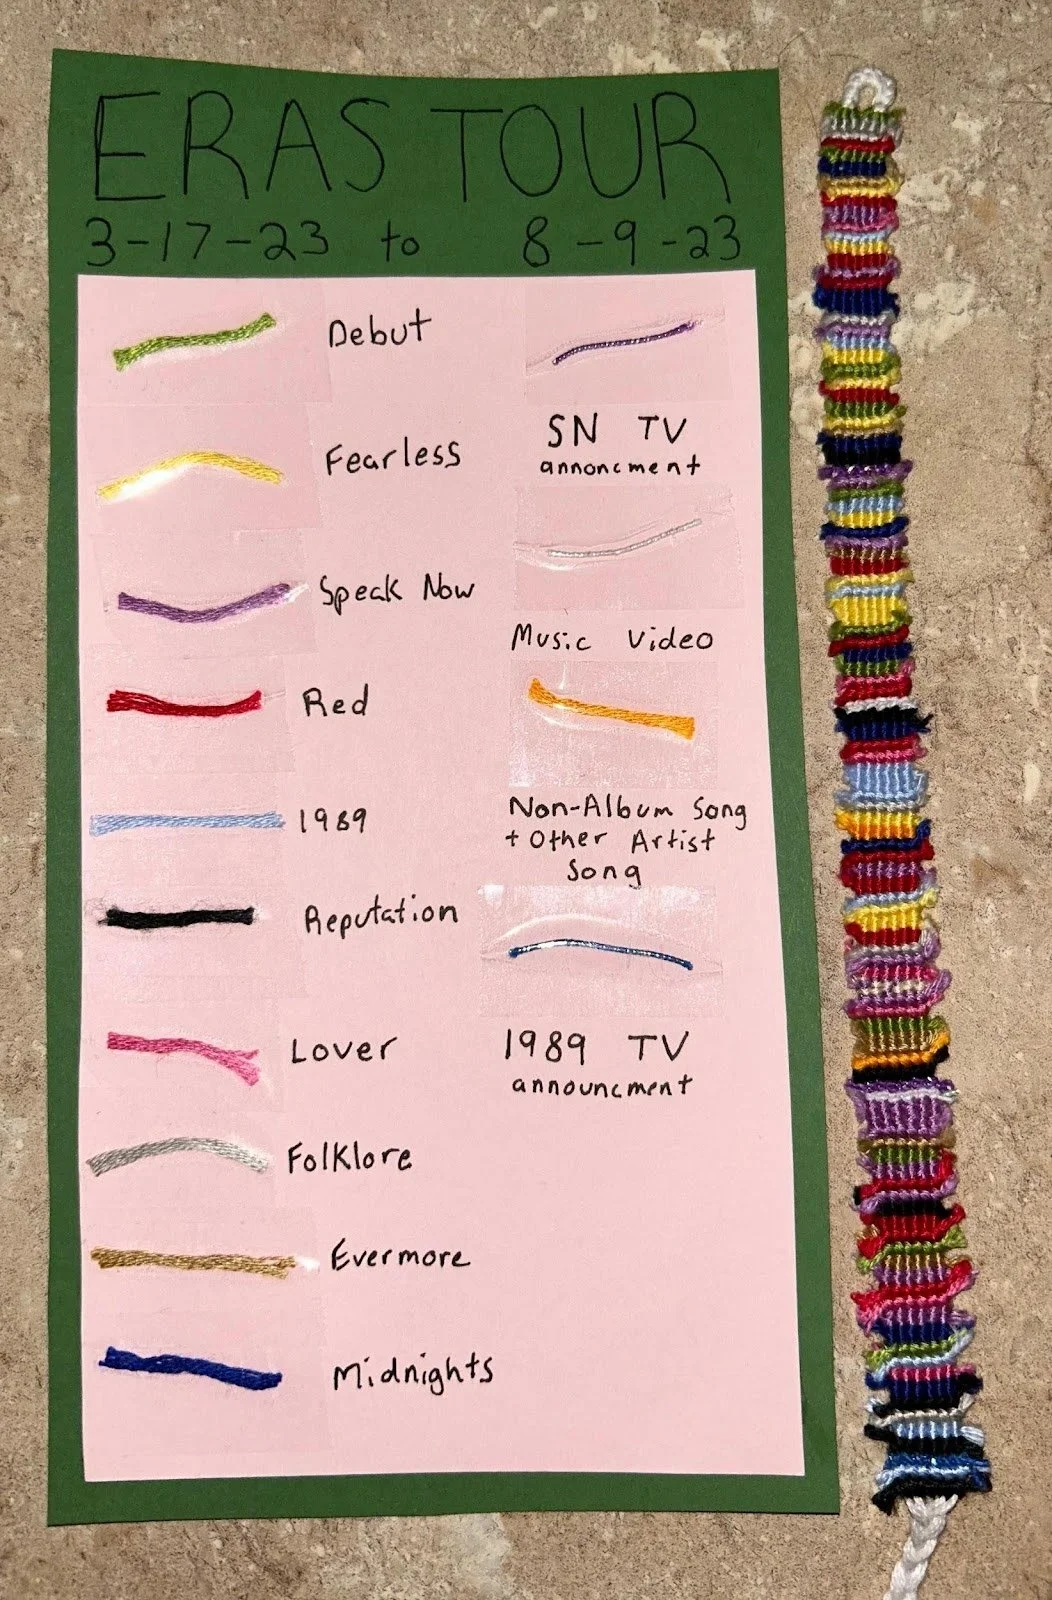 ERAS TOUR
3-17-23 to 8-9-23
Debut
Fearless
Speak Now
Red
1989
Reputation
Lover
Folklore
Evermore
Midnights
SN TV
annoncment
Music Video
Non-Album Song
+ Other Artist
Song
1989 TV
announcment